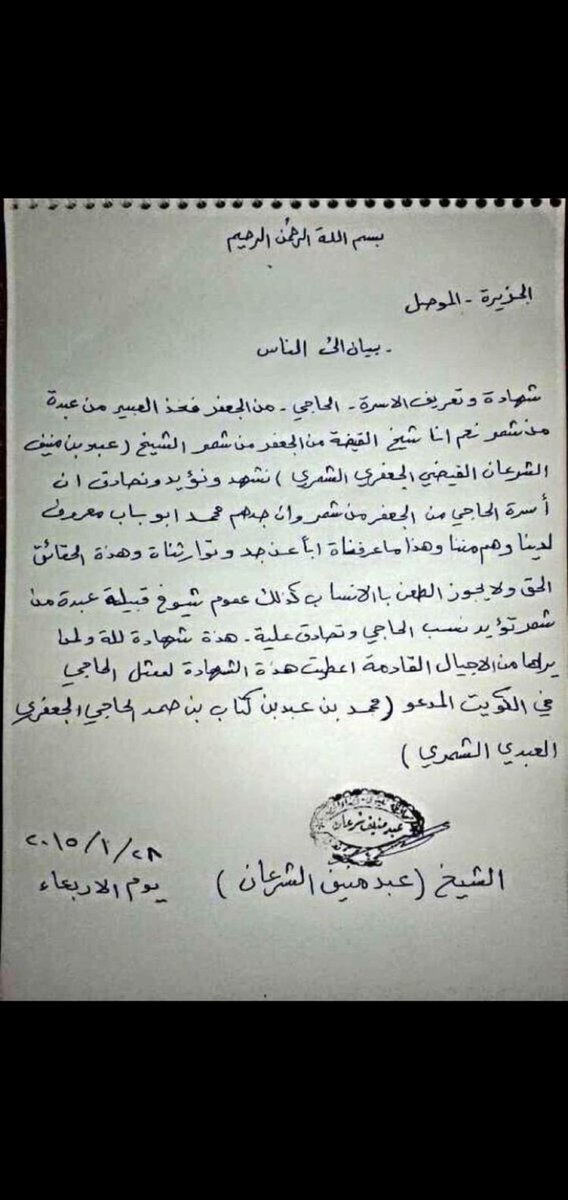 بسم اللة الرحمن الرحيم
الجزيرة - الموصل
- بيان الى الناس
شهادة وتعريف الاسرة - الحاجي - من الجعفر فخذ العبير من عبدة
من شمر نعم انا شيخ القيضة من الجعفر من شمر الشيخ (عبد بن منيف
الشرعان القيضي الجعفري الشمري) نشهد ونؤيد ونصادق ان
أسرة الحاجي من الجعفر من شمر وان جدهم محمد ابو باب معروف
لدينا وهم مننا وهذا ماعرفناة اباً عن جد وتوارثناة وهذة الحقائق
الحق ولايجوز الطعن باالانساب كذلك عموم شيوخ قبيلة عبدة من
شمر تؤيد نسب الحاجي وتصادق علية. هذة شهادة للة ولمن
يراها من الاجيال القادمة اعطيت هذة الشهادة لممثل الحاجي
في الكويت المدعو (محمد بن عبد بن كتاب بن حمد الحاجي الجعفري
العبدي الشمري)
عبد منيف شرعان
٢٠١٥/١/٢٨
الشيخ (عبد منيف الشرعان)
يوم الاربعاء